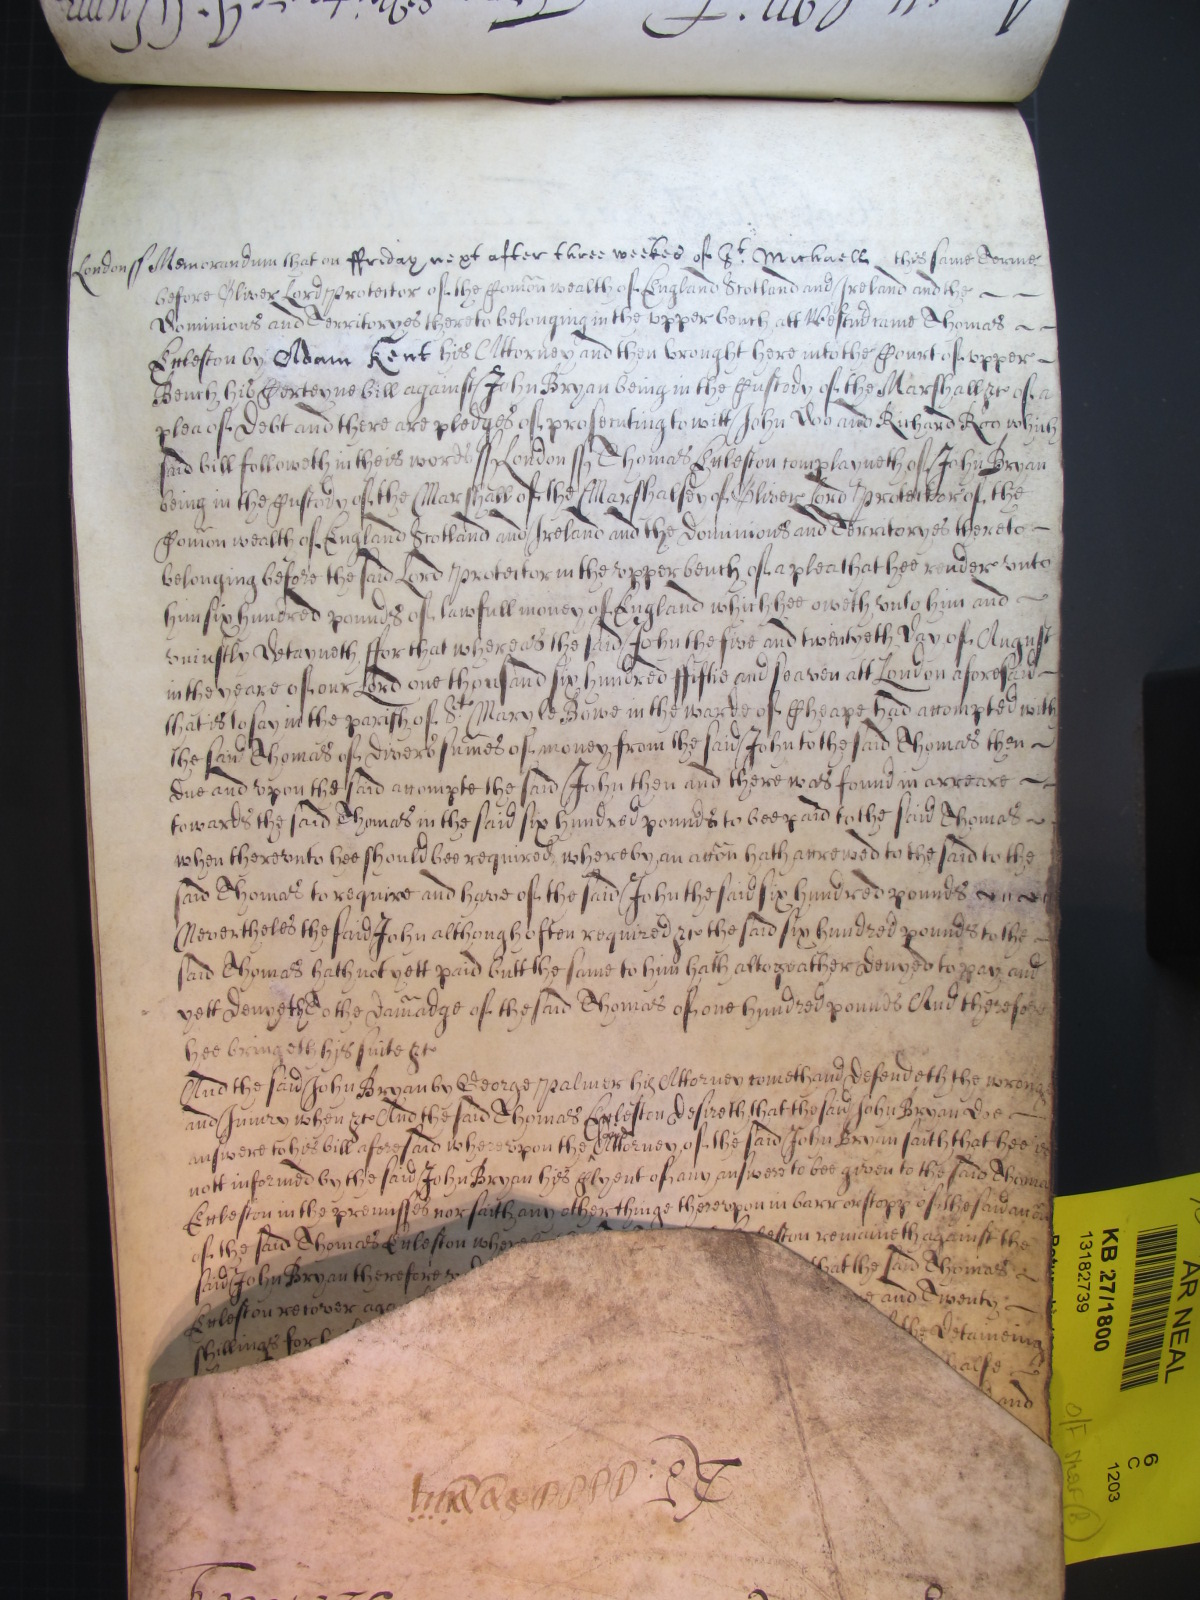 London ss Memorandum that on ffriday next after three weekes of St. Michaell this same Terme
before Oliver Lord Protector of the Comon wealth of England Scotland and Ireland and the
Dominions and Territoryes thereto belonging in the upper bench att Westm came Thomas
Eccleston by Adam Kent his Attorney and then brought here into the Court of upper
Bench his Certeyne bill against John Bryan being in the Custody of the Marshall &c of a
plea of Debt and there are pledges of prosecuting to witt John Doo and Richard Roo which
said bill followeth in theis words ss London ss Thomas Eccleston complayneth of John Bryan
being in the Custody of the Marshall of the Marshalsey of Oliver Lord Protector of the
Comon wealth of England Scotland and Ireland and the Dominions and Territoryes thereto
belonging before the said Lord Protector in the upper bench of a plea that hee render unto
him six hundred pounds of lawfull money of England which hee oweth unto him and
uniustly detayneth ffor that whereas the said John the five and twentyeth day of August
in the yeare of our Lord one thousand six hundred ffiftie and seaven att London aforesaid
that is to say in the parish of St Mary le Bowe in the warde of Cheape had accompted with
the said Thomas of divers sumes of money from the said John to the said Thomas then
due and upon the said accompte the said John then and there was found in arreare
towards the said Thomas in the said six hundred pounds to bee paid to the said Thomas
when thereunto hee should bee required whereby an accon hath accrewed to the said to the
said Thomas to require and have of the said John the said six hundred pounds
Nevertheles the said John although often required &c the said six hundred pounds to the
said Thomas hath not yett paid butt the same to him hath altogeather denyed to pay and
yett denyeth To the damadge of the said Thomas of one hundred pounds And therefore
hee bringeth his suite &c
And the said John Bryan by George Palmer his Attorney cometh and defendeth the wronge
and Iniury when &c And the said Thomas Eccleston desireth that the said John Bryan doe
answere to his bill aforesaid whereupon the Attorney of the said John Bryan saith that hee is
nott informed by the said John Bryan his Clyent of any answere to bee given to the said Thomas
Eccleston in the premisses nor saith any other thinge thereupon in barr or stopp of the said accon
of the said Thomas Eccleston where leston remaineth against the
said John Bryan therefore that the said Thomas
Eccleston recover aga and Twenty
shillings for h the detaineing
halfe
and
KB 27/1800
13182739
AR NEAL
6
C
1203